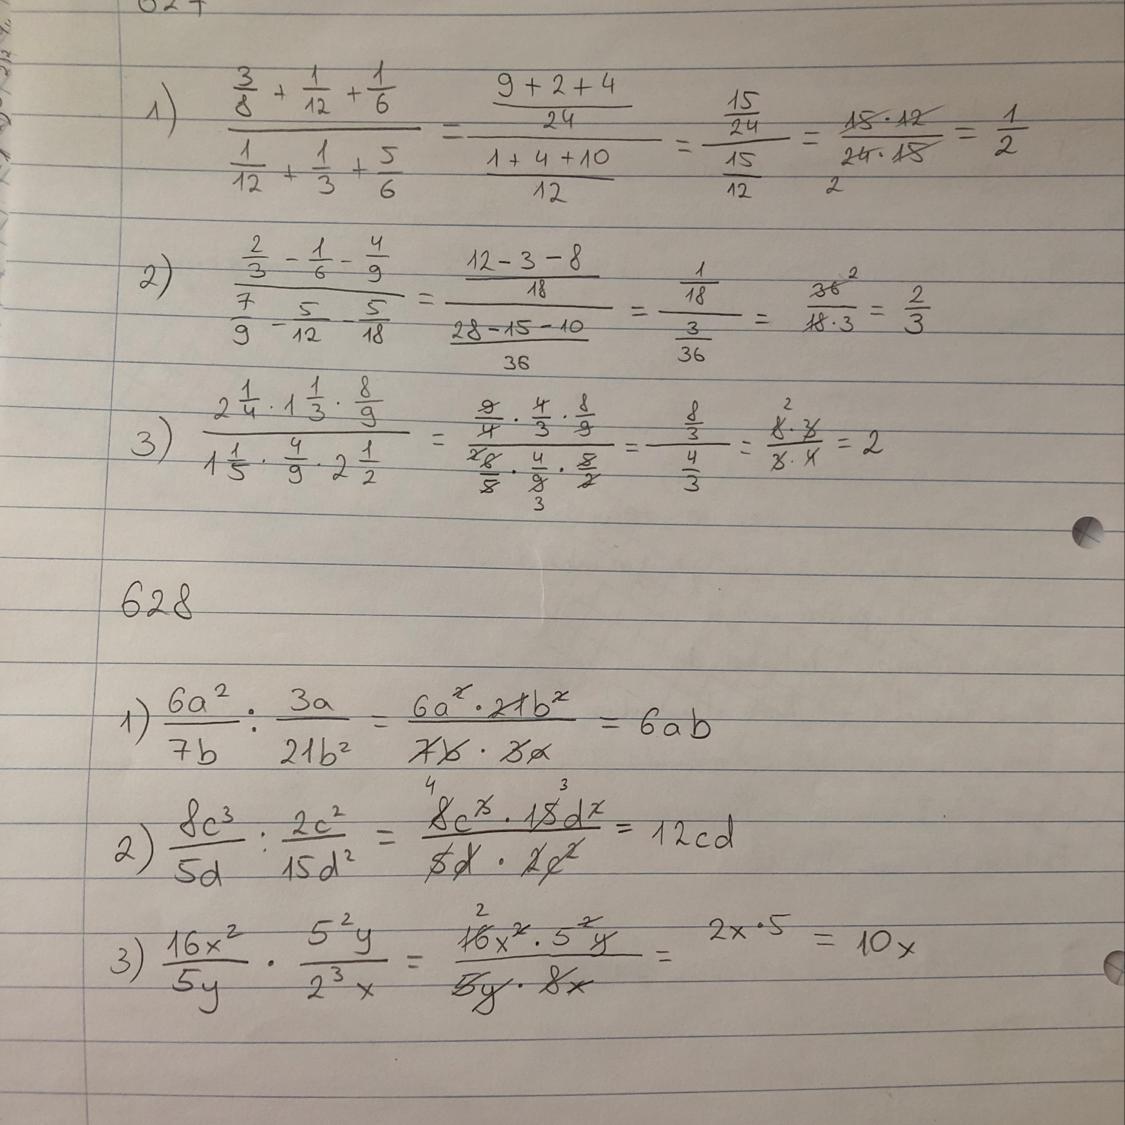 1) (3/8 + 1/12 + 1/6)/(1/12 + 1/3 + 5/6) = ((9 + 2 + 4)/24)/((1 + 4 + 10)/12) = (15/24)/(15/12) = (15 · 12)/(24 · 15) 2 = 1/2
2) (2/3 - 1/6 - 4/9)/(7/9 - 5/12 - 5/18) = ((12 - 3 - 8)/18)/((28 - 15 - 10)/36) = (1/18)/(3/36) = 36 2/(18 · 3) = 2/3
3) (2 1/4 · 1 1/3 · 8/9)/(1 1/5 · 4/9 · 2 1/2) = (9/4 · 4/3 · 8/9)/(2 6/5 · 4/9 3 · 5/2) = (8/3)/(4/3) = (2 8 · 3)/(3 · 4) = 2
628
1) 6a²/7b : 3a/21b² = (6a² · 21b²)/(7b · 3a) = 6ab
2) 8c³/5d : 2c²/15d² = (4 8c³ · 15 3 d²)/(5d · 2c²) = 12cd
3) 16x²/5y · 5²y/2³x = (2 16x² · 5²y)/(5y · 8x) = 2x · 5 = 10x